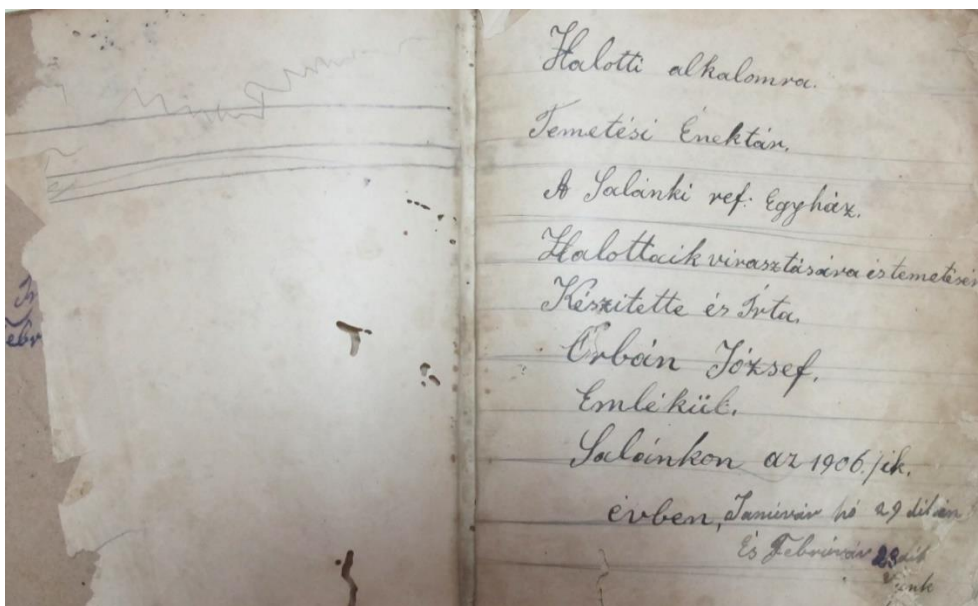 Ebr
Halotti alkalomra.
Temetési Énektár.
A Salánki ref: Egyház.
Halottaik virasztására és temetésén
Készitette és Írta.
Orbán József.
Emlékül.
Salánkon az 1906./ik.
évben, Januvár hó 29
És Februvár